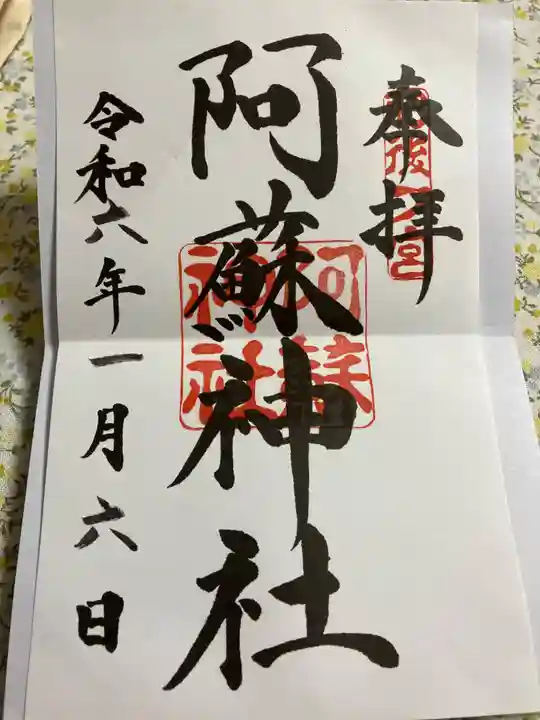 奉拝
阿蘇神社
阿蘇神社
令和六年一月六日